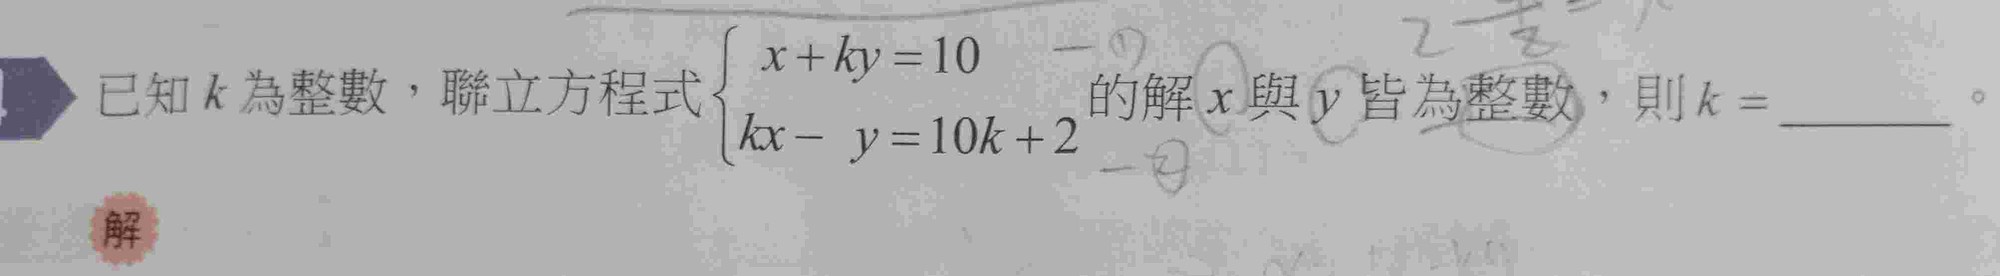 已知 k 為整數，聯立方程式 { x + ky = 10 —①
kx − y = 10k + 2 —② 的解 x 與 y 皆為整數，則 k = ______。
解